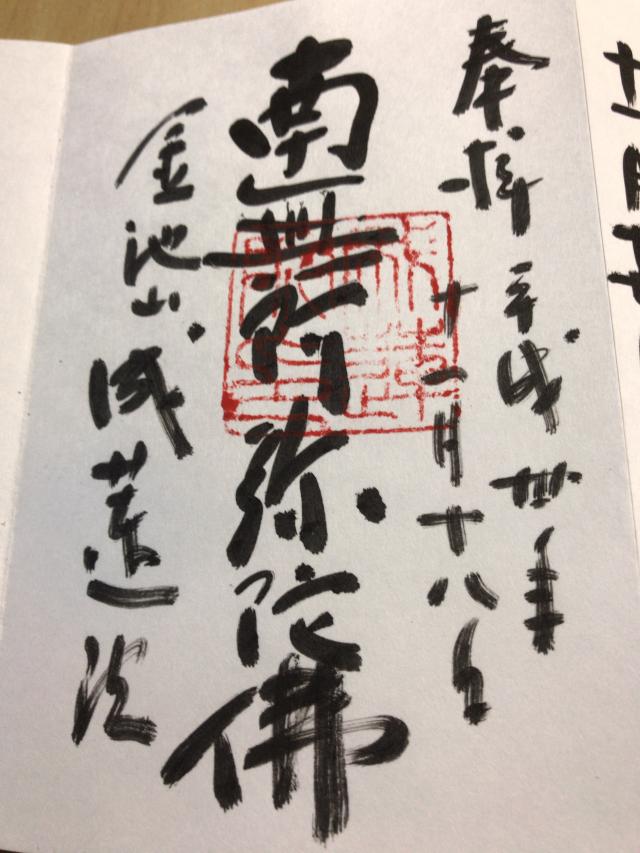 奉拝
平成卅年
十一月十八日
南無阿弥陀佛
金池山
成蓮院